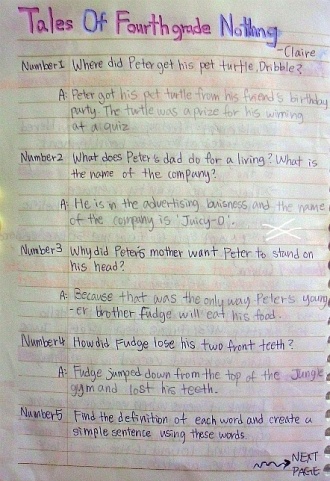 Tales Of Fourthgrade Nothing
-Claire
Number1 Where did Peter get his pet turtle, Dribble?
A: Peter got his pet turtle from his friend's birthday
party. The turtle was a prize for his winning
at a quiz
Number2 What does Peter's dad do for a living? What is
the name of the company?
A: He is in the advertising buisness and the name
of the company is 'Juicy-O'.
Number3 Why did Peter's mother want Peter to stand on
his head?
A: Because that was the only way Peter's young
-er brother Fudge will eat his food.
Number4 How did Fudge lose his two front teeth?
A: Fudge jumped down from the top of the Jungle
gym and lost his teeth.
Number5 Find the definition of each word and create a
simple sentence using these words.
NEXT
PAGE